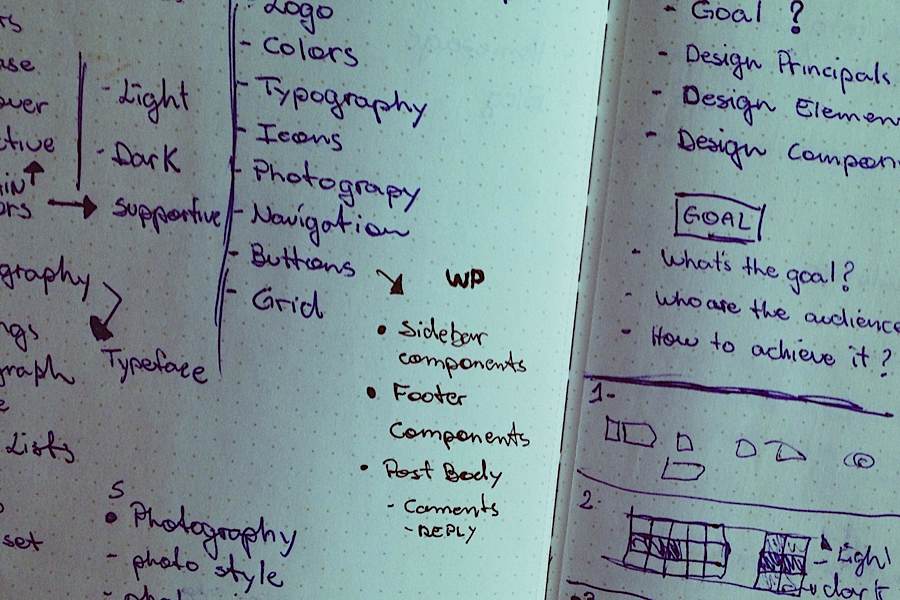 Light
- Dark
supportive
graphy
Typeface
Lists
set
S
• Photography
- photo style
- Logo
- Colors
- Typography
- Icons
- Photograpy
- Navigation
- Buttons
- Grid
WP
• Sidebar
components
• Footer
Components
• Post Body
- Coments
- REPLY
- Goal ?
- Design Principals
- Design Elemen
- Design Compon
GOAL
- What's the goal?
- who are the audience
- How to achieve it?
1-
2-
Light
dark